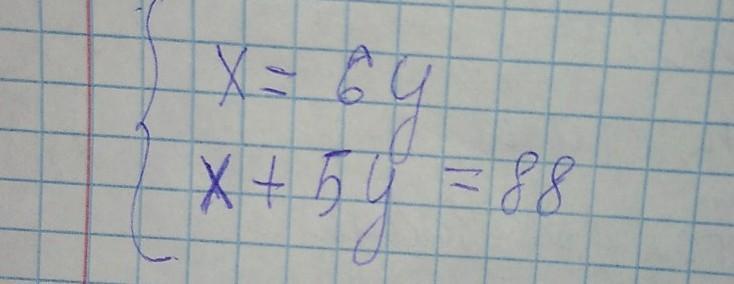 x = 6y
x + 5y = 88